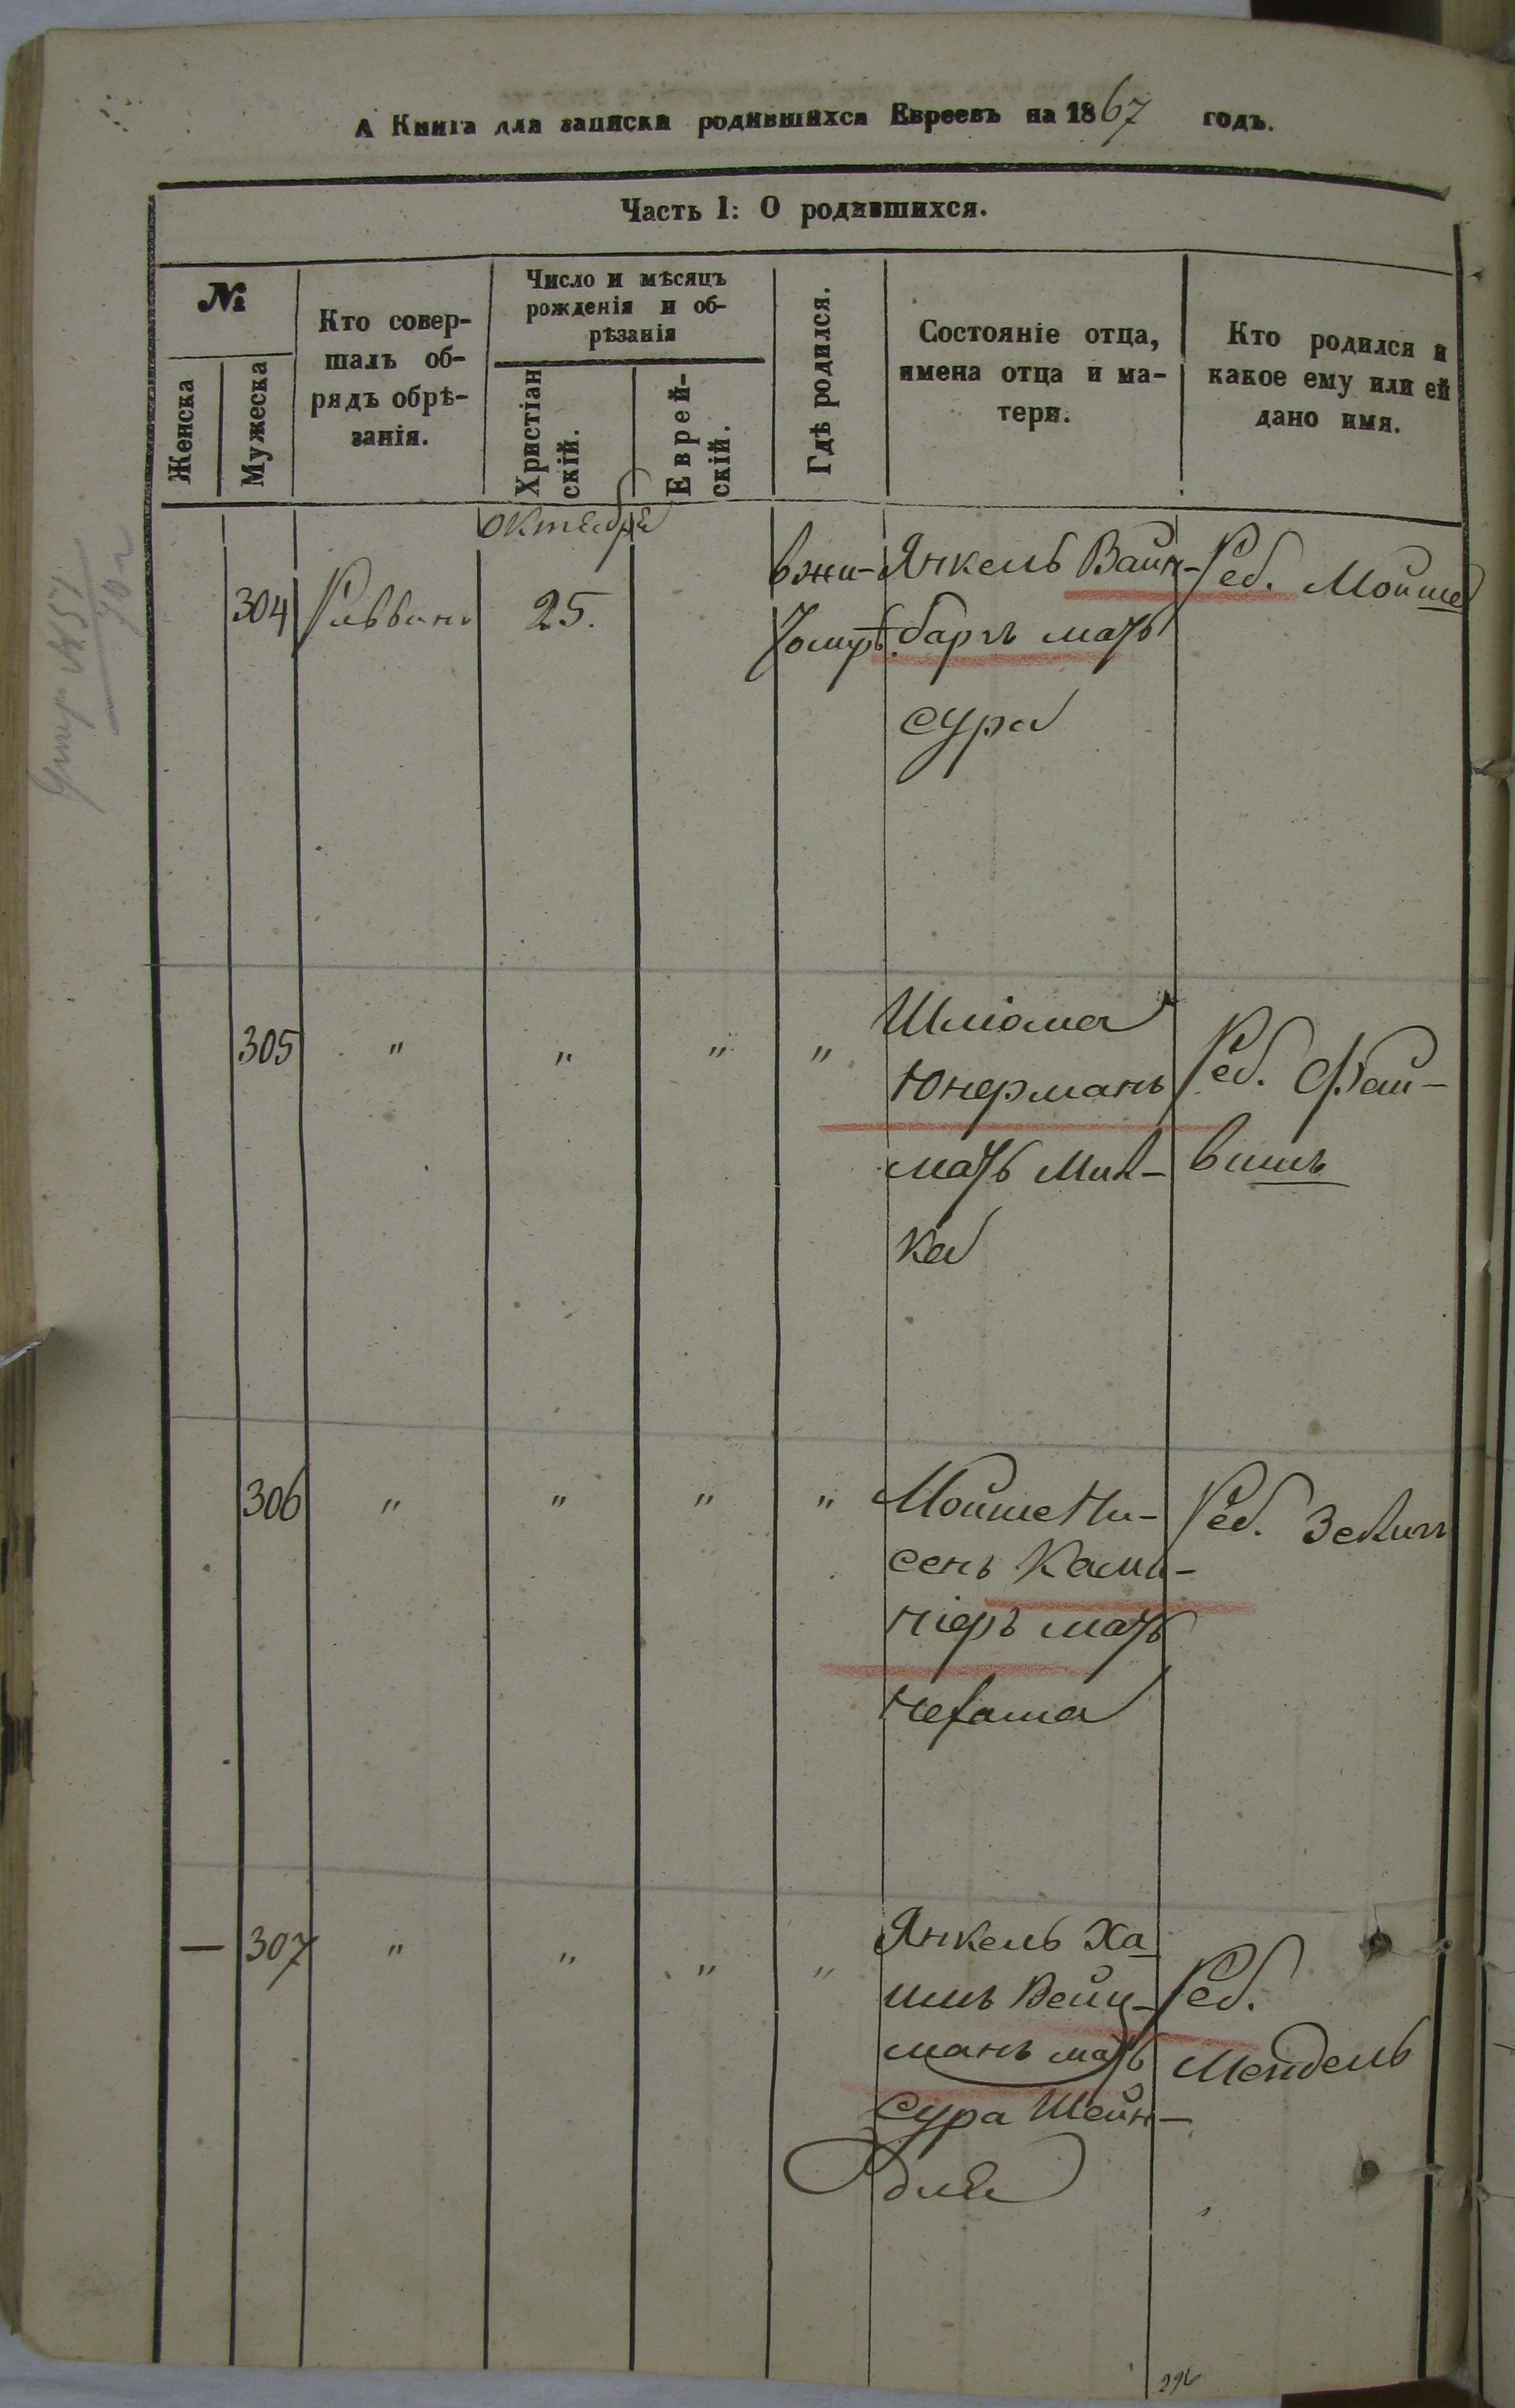 А Книга для записки родившихся Евреевъ на 1867 годъ.
Часть I: О родившихся.
№
Женска
Мужеска
Кто совер-
шалъ об-
рядъ обрѣ-
занія.
Число и мѣсяцъ
рожденія и об-
рѣзанія
Христіан
скій.
Еврей-
скій.
Гдѣ родился.
Состояніе отца,
имена отца и ма-
тери.
Кто родился и
какое ему или ей
дано имя.
Октября
304
Раввинъ
25.
в жи-
томирѣ
Янкель Вайн-
баргъ мать
Сура
Реб. Мойше
305
"
"
"
"
Шліома
Юнерманъ
мать Мин-
ка
Реб. Фай-
вишъ
306
"
"
"
"
Мойше Ни-
сенъ Ками-
ніеръ мать
Нехама
Реб. Зелигъ
— 307
"
"
"
"
Янкель Ха
имъ Вейц-
манъ мать
Сура Шейн-
для
Реб.
Мендель
296